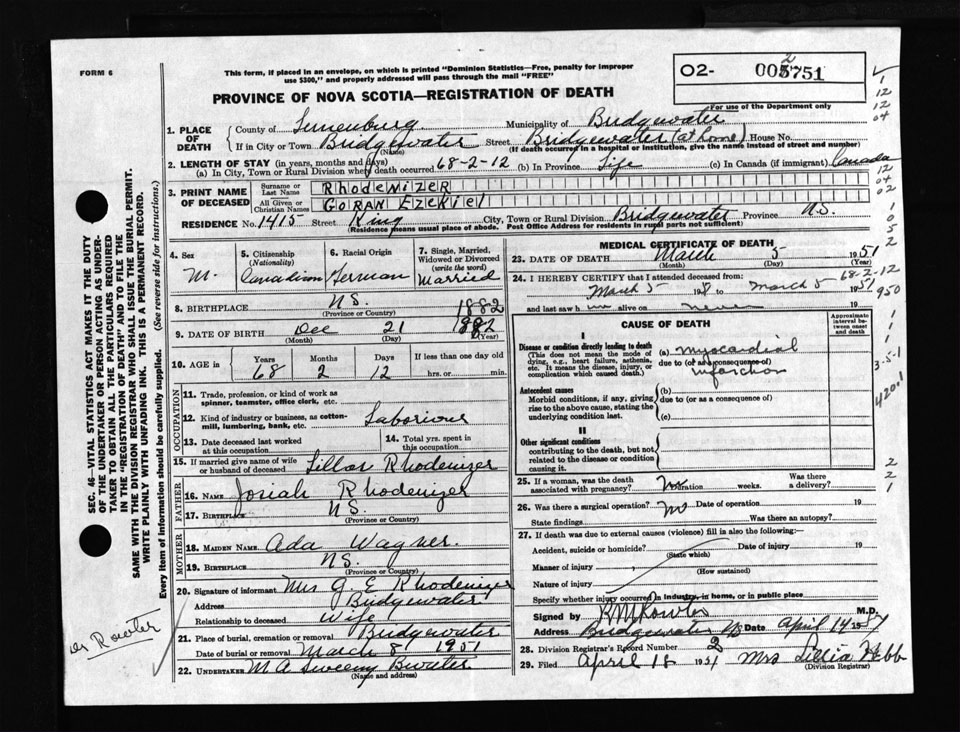 FORM 6
This form, if placed in an envelope, on which is printed "Dominion Statistics—Free, penalty for improper
use $300," and properly addressed will pass through the mail "FREE"
02- 005751
2
For use of the Department only
PROVINCE OF NOVA SCOTIA—REGISTRATION OF DEATH
1. PLACE OF DEATH
County of Lunenburg Municipality of Bridgewater
If in City or Town Bridgewater (Name) Street Bridgewater (at home) House No.
(If death occurred in a hospital or institution, give the name instead of street and number)
2. LENGTH OF STAY (in years, months and days)
(a) In City, Town or Rural Division where death occurred 68-2-12 (b) In Province Life (c) In Canada (if immigrant) Canada
3. PRINT NAME OF DECEASED
Surname or Last Name RHODENIZER
All Given or Christian Names GORAN EZEKIEL
RESIDENCE No. 1415 Street King City, Town or Rural Division Bridgewater Province N.S.
(Residence means usual place of abode. Post Office Address for residents in rural parts not sufficient)
4. Sex
M.
5. Citizenship (Nationality)
Canadian
6. Racial Origin
German
7. Single, Married, Widowed or Divorced (write the word)
Married
8. BIRTHPLACE N.S.
(Province or Country)
1882
9. DATE OF BIRTH Dec 21 1882
(Month) (Day) (Year)
10. AGE in Years Months Days If less than one day old
68 2 12 hrs. or min.
OCCUPATION
11. Trade, profession, or kind of work as spinner, teamster, office clerk, etc.
12. Kind of industry or business, as cotton-mill, lumbering, bank, etc.
13. Date deceased last worked at this occupation
14. Total yrs. spent in this occupation
15. If married give name of wife or husband of deceased Rhodenizer
FATHER
16. NAME Josiah Rhodenizer
17. BIRTHPLACE N.S.
(Province or Country)
MOTHER
18. MAIDEN NAME Ada Wagner.
19. BIRTHPLACE N.S.
(Province or Country)
20. Signature of informant Mrs G. E Rhodenizer
Address Bridgewater
Relationship to deceased Wife
21. Place of burial, cremation or removal Bridgewater
Date of burial or removal March 8 1951
22. UNDERTAKER M. A Sweeny Bwater
(Name and address)
MEDICAL CERTIFICATE OF DEATH
23. DATE OF DEATH March 5 1951
(Month) (Day)
24. I HEREBY CERTIFY that I attended deceased from:
March 5 19 to March 5 1951
and last saw h im alive on never 19
CAUSE OF DEATH
Approximate interval between onset and death
I
Disease or condition directly leading to death
(This does not mean the mode of dying, e.g., heart failure, asthenia, etc. It means the disease, injury, or complication which caused death.)
(a) myocardial
due to (or as a consequence of)
infarction
Antecedent causes
Morbid conditions, if any, giving rise to the above cause, stating the underlying condition last.
(b)
due to (or as a consequence of)
(c)
II
Other significant conditions
contributing to the death, but not related to the disease or condition causing it.
25. If a woman, was the death associated with pregnancy? no Duration weeks. Was there a delivery?
26. Was there a surgical operation? no Date of operation 19
State findings Was there an autopsy?
27. If death was due to external causes (violence) fill in also the following:
Accident, suicide or homicide? Date of injury 19
(State which)
Manner of injury
(How sustained)
Nature of injury
Specify whether injury occurred in industry, in home, or in public place
Signed by M.D.
Address Bridgewater NS Date April 14 1951
28. Division Registrar's Record Number 2
29. Filed April 18 1951 Mrs Webb
(Division Registrar)
SEC. 46—VITAL STATISTICS ACT MAKES IT THE DUTY
OF THE UNDERTAKER OR PERSON ACTING AS UNDER-
TAKER TO OBTAIN ALL THE PARTICULARS REQUIRED
IN THE "REGISTRATION OF DEATH" AND TO FILE THE
SAME WITH THE DIVISION REGISTRAR WHO SHALL ISSUE THE BURIAL PERMIT.
WRITE PLAINLY WITH UNFADING INK. THIS IS A PERMANENT RECORD.
Every item of information should be carefully supplied. (See reverse side for instructions.)
1
12
12
04
12
04
02
1
0
5
2
68-2-12
950
1
1
1
3-5-1
420.1
2
2
1